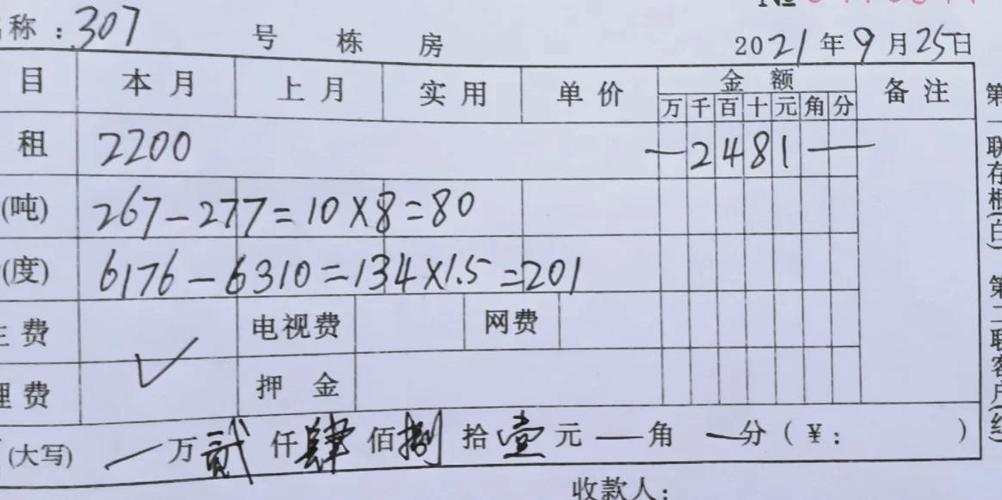 称:307 号 栋 房
2021年9月25日
目 本月 上月 实用 单价 金额 备注
万 千 百 十 元 角 分
租 2200 — 2481 —
(吨) 267-277=10×8=80
(度) 6176-6310=134×1.5=201
费 电视费 网费
理费 ✓ 押 金
(大写) — 万 贰 仟 肆 佰 捌 拾 壹 元 — 角 — 分 (¥: )
收款人:
第一联存根(白) 第二联客户(红)